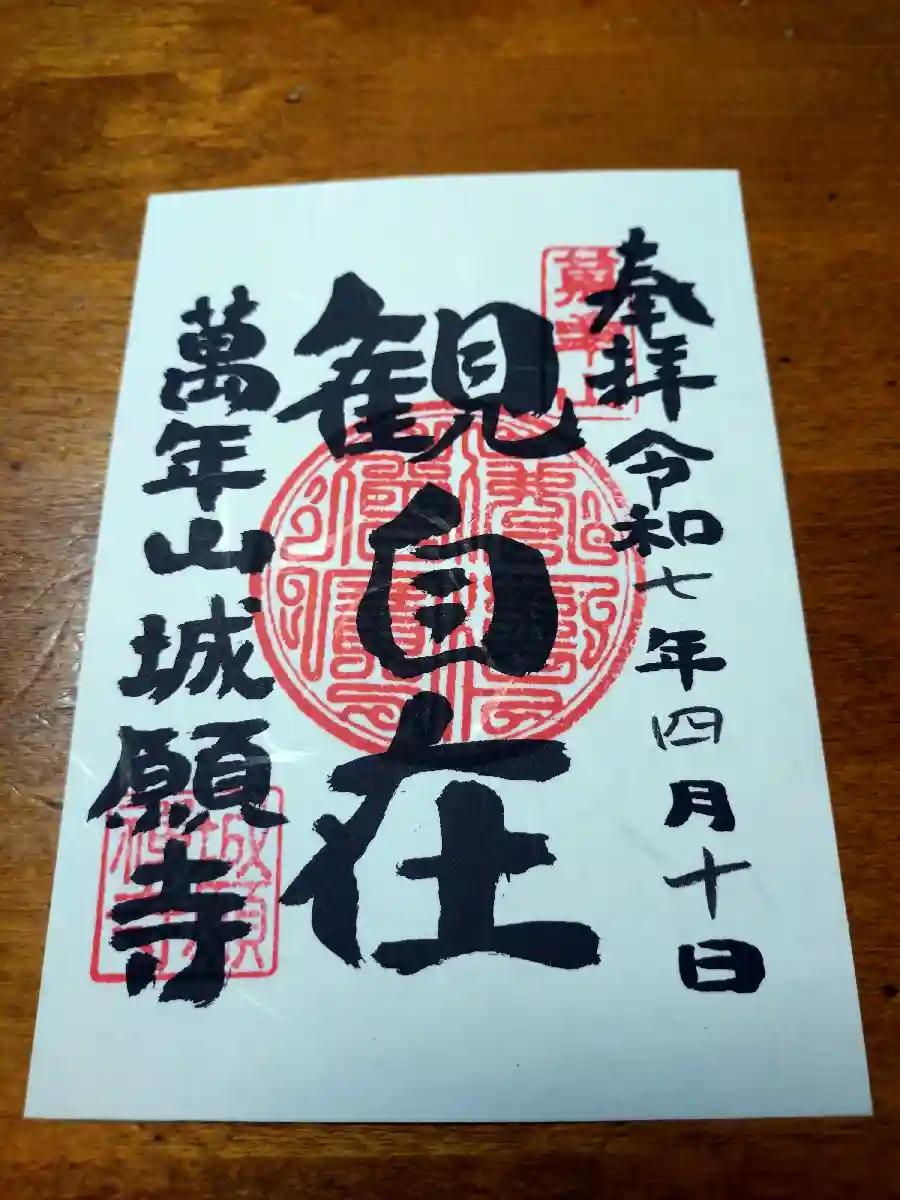 奉拝令和七年四月十日
観自在
萬年山城願寺
萬年山